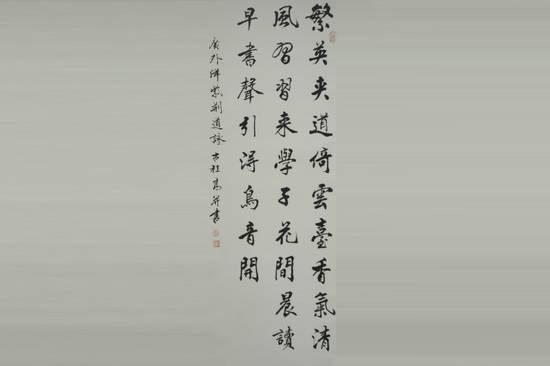 繁英夹道倚雲臺香氣清
風習習来學子花間晨讀
早書聲引得鳥音開
廣外洋紫荆道詠 古稀高并書